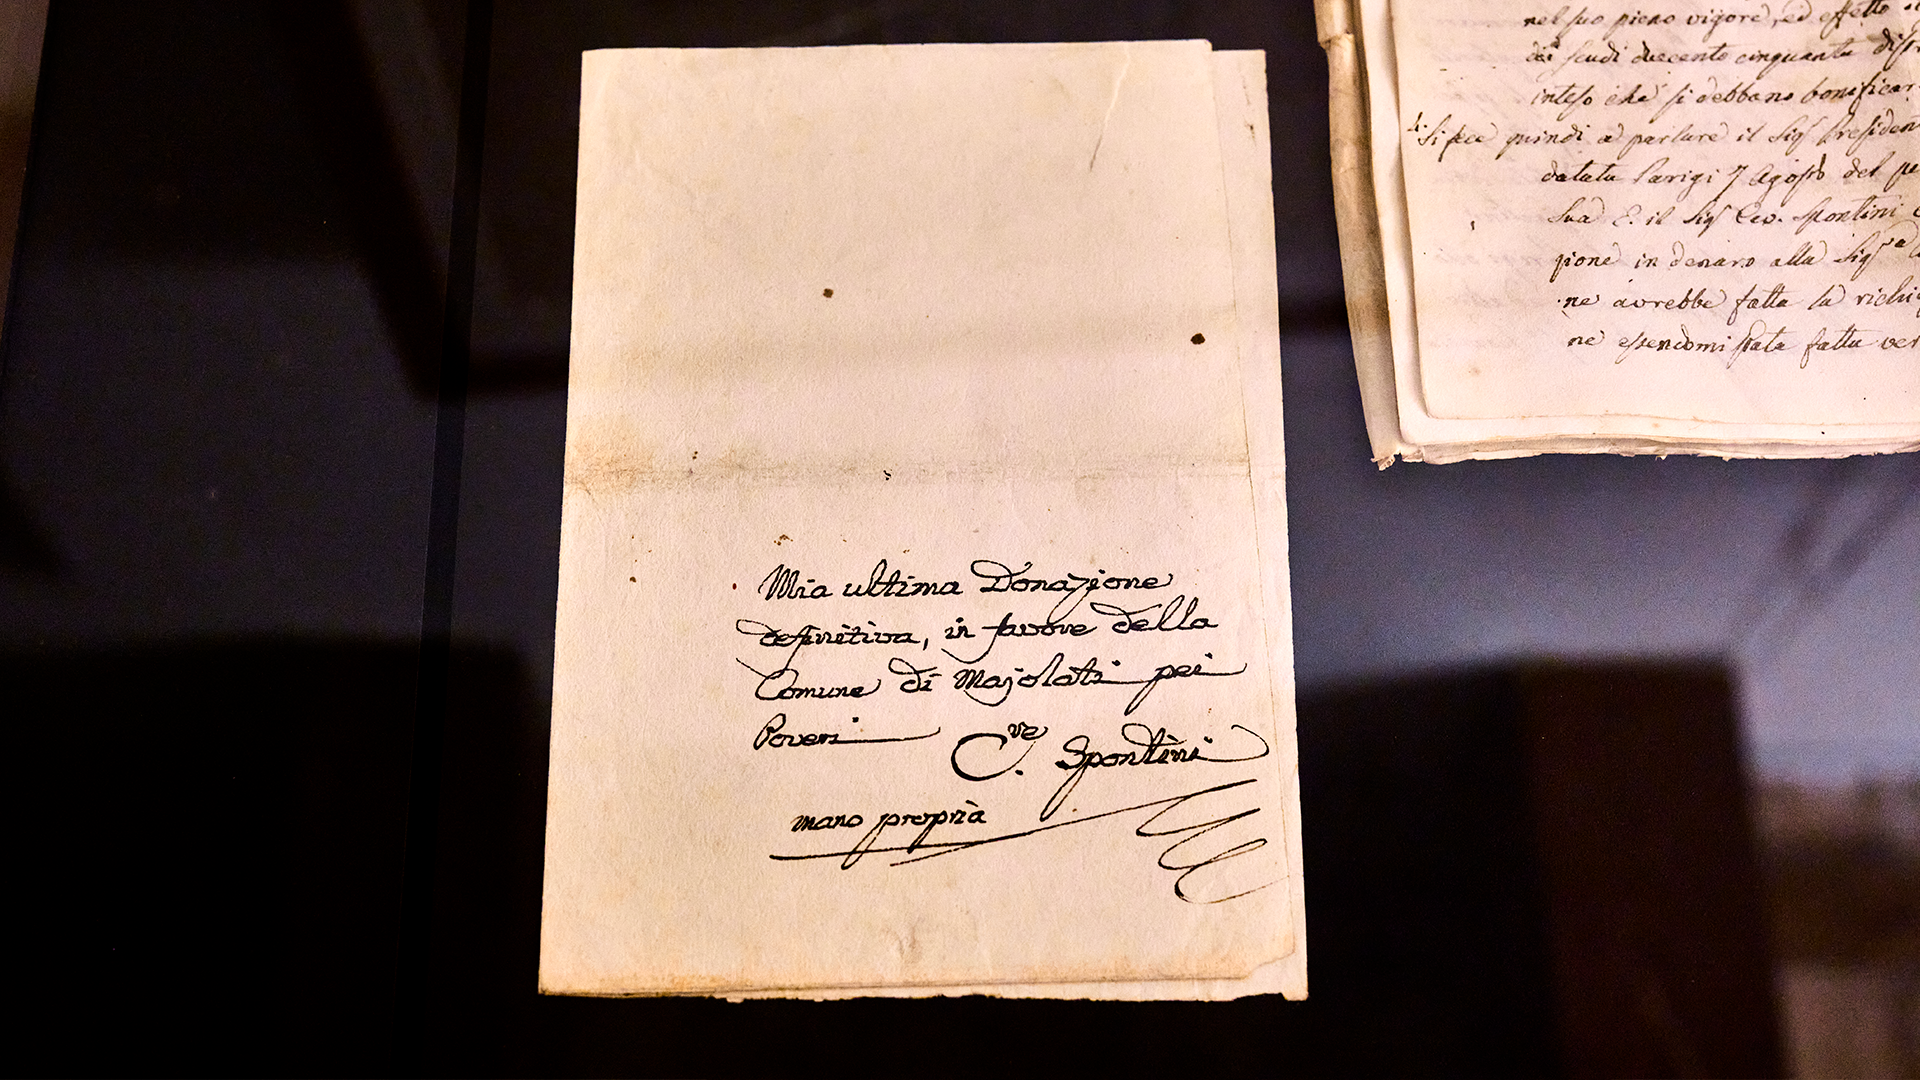 Mia ultima Donazione
definitiva, in favore della
Comune di Majolati pei
Poveri
C.ve Spontini
mano propria
nel suo pieno vigore, ed effetto
dei scudi duecento cinquanta
inteso che si debbano bonificar
Si fece quindi a parlare il Sigr Presiden
datata Parigi 7 Agosto del pe
Sua E. il Sigr Cav. Spontini
zione in denaro alla Sigra
ne avrebbe fatta la richi
ne essendomi stata fatta ver